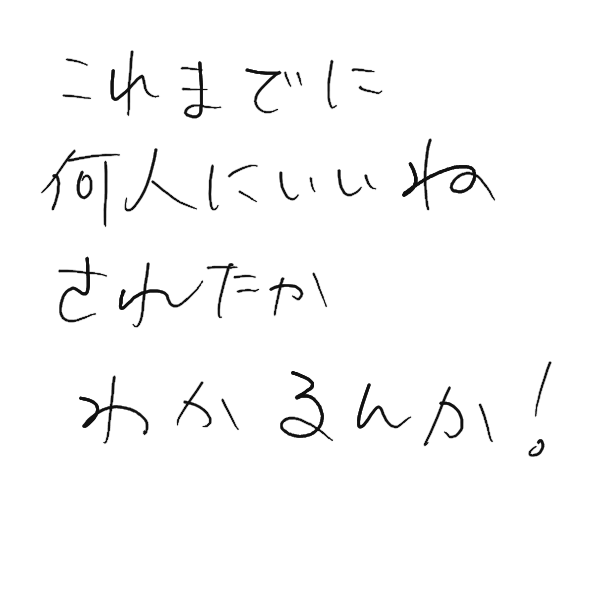 これまでに
何人にいいね
されたか
わかるんか!